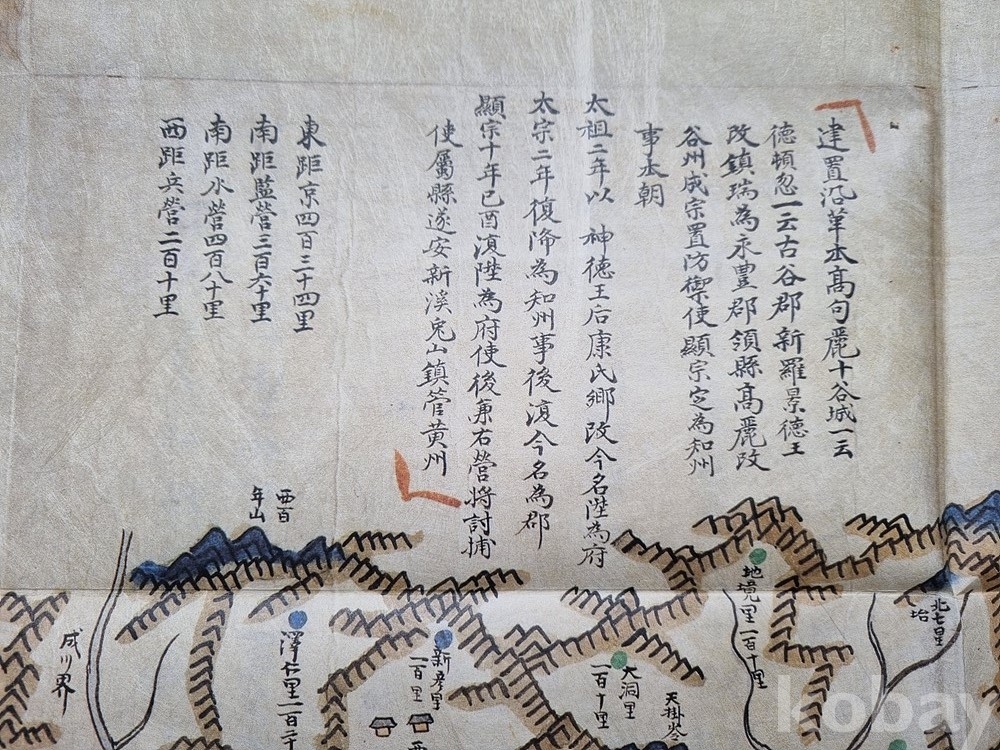 建置沿革本高句麗十谷城一云
德頓忽一云古谷郡新羅景德王
改鎮瑞為永豊郡領縣高麗改
谷州成宗置防禦使顯宗定為知州
事本朝
太祖二年以 神德王后康氏鄉改今名陞為府
太宗二年復降為知州事後復今名為郡
顯宗十年己酉復陞為府使後兼右營將討捕
使屬縣遂安新溪兎山鎮管黃州
東距京四百三十四里
南距監營三百六十里
南距水營四百八十里
西距兵營二百十里
西百
年山
北七星
地境里一百十里
大洞里
一百十里
天掛岺
新彦里
一百里
西
澤仁里一百二十
成川界
kobay